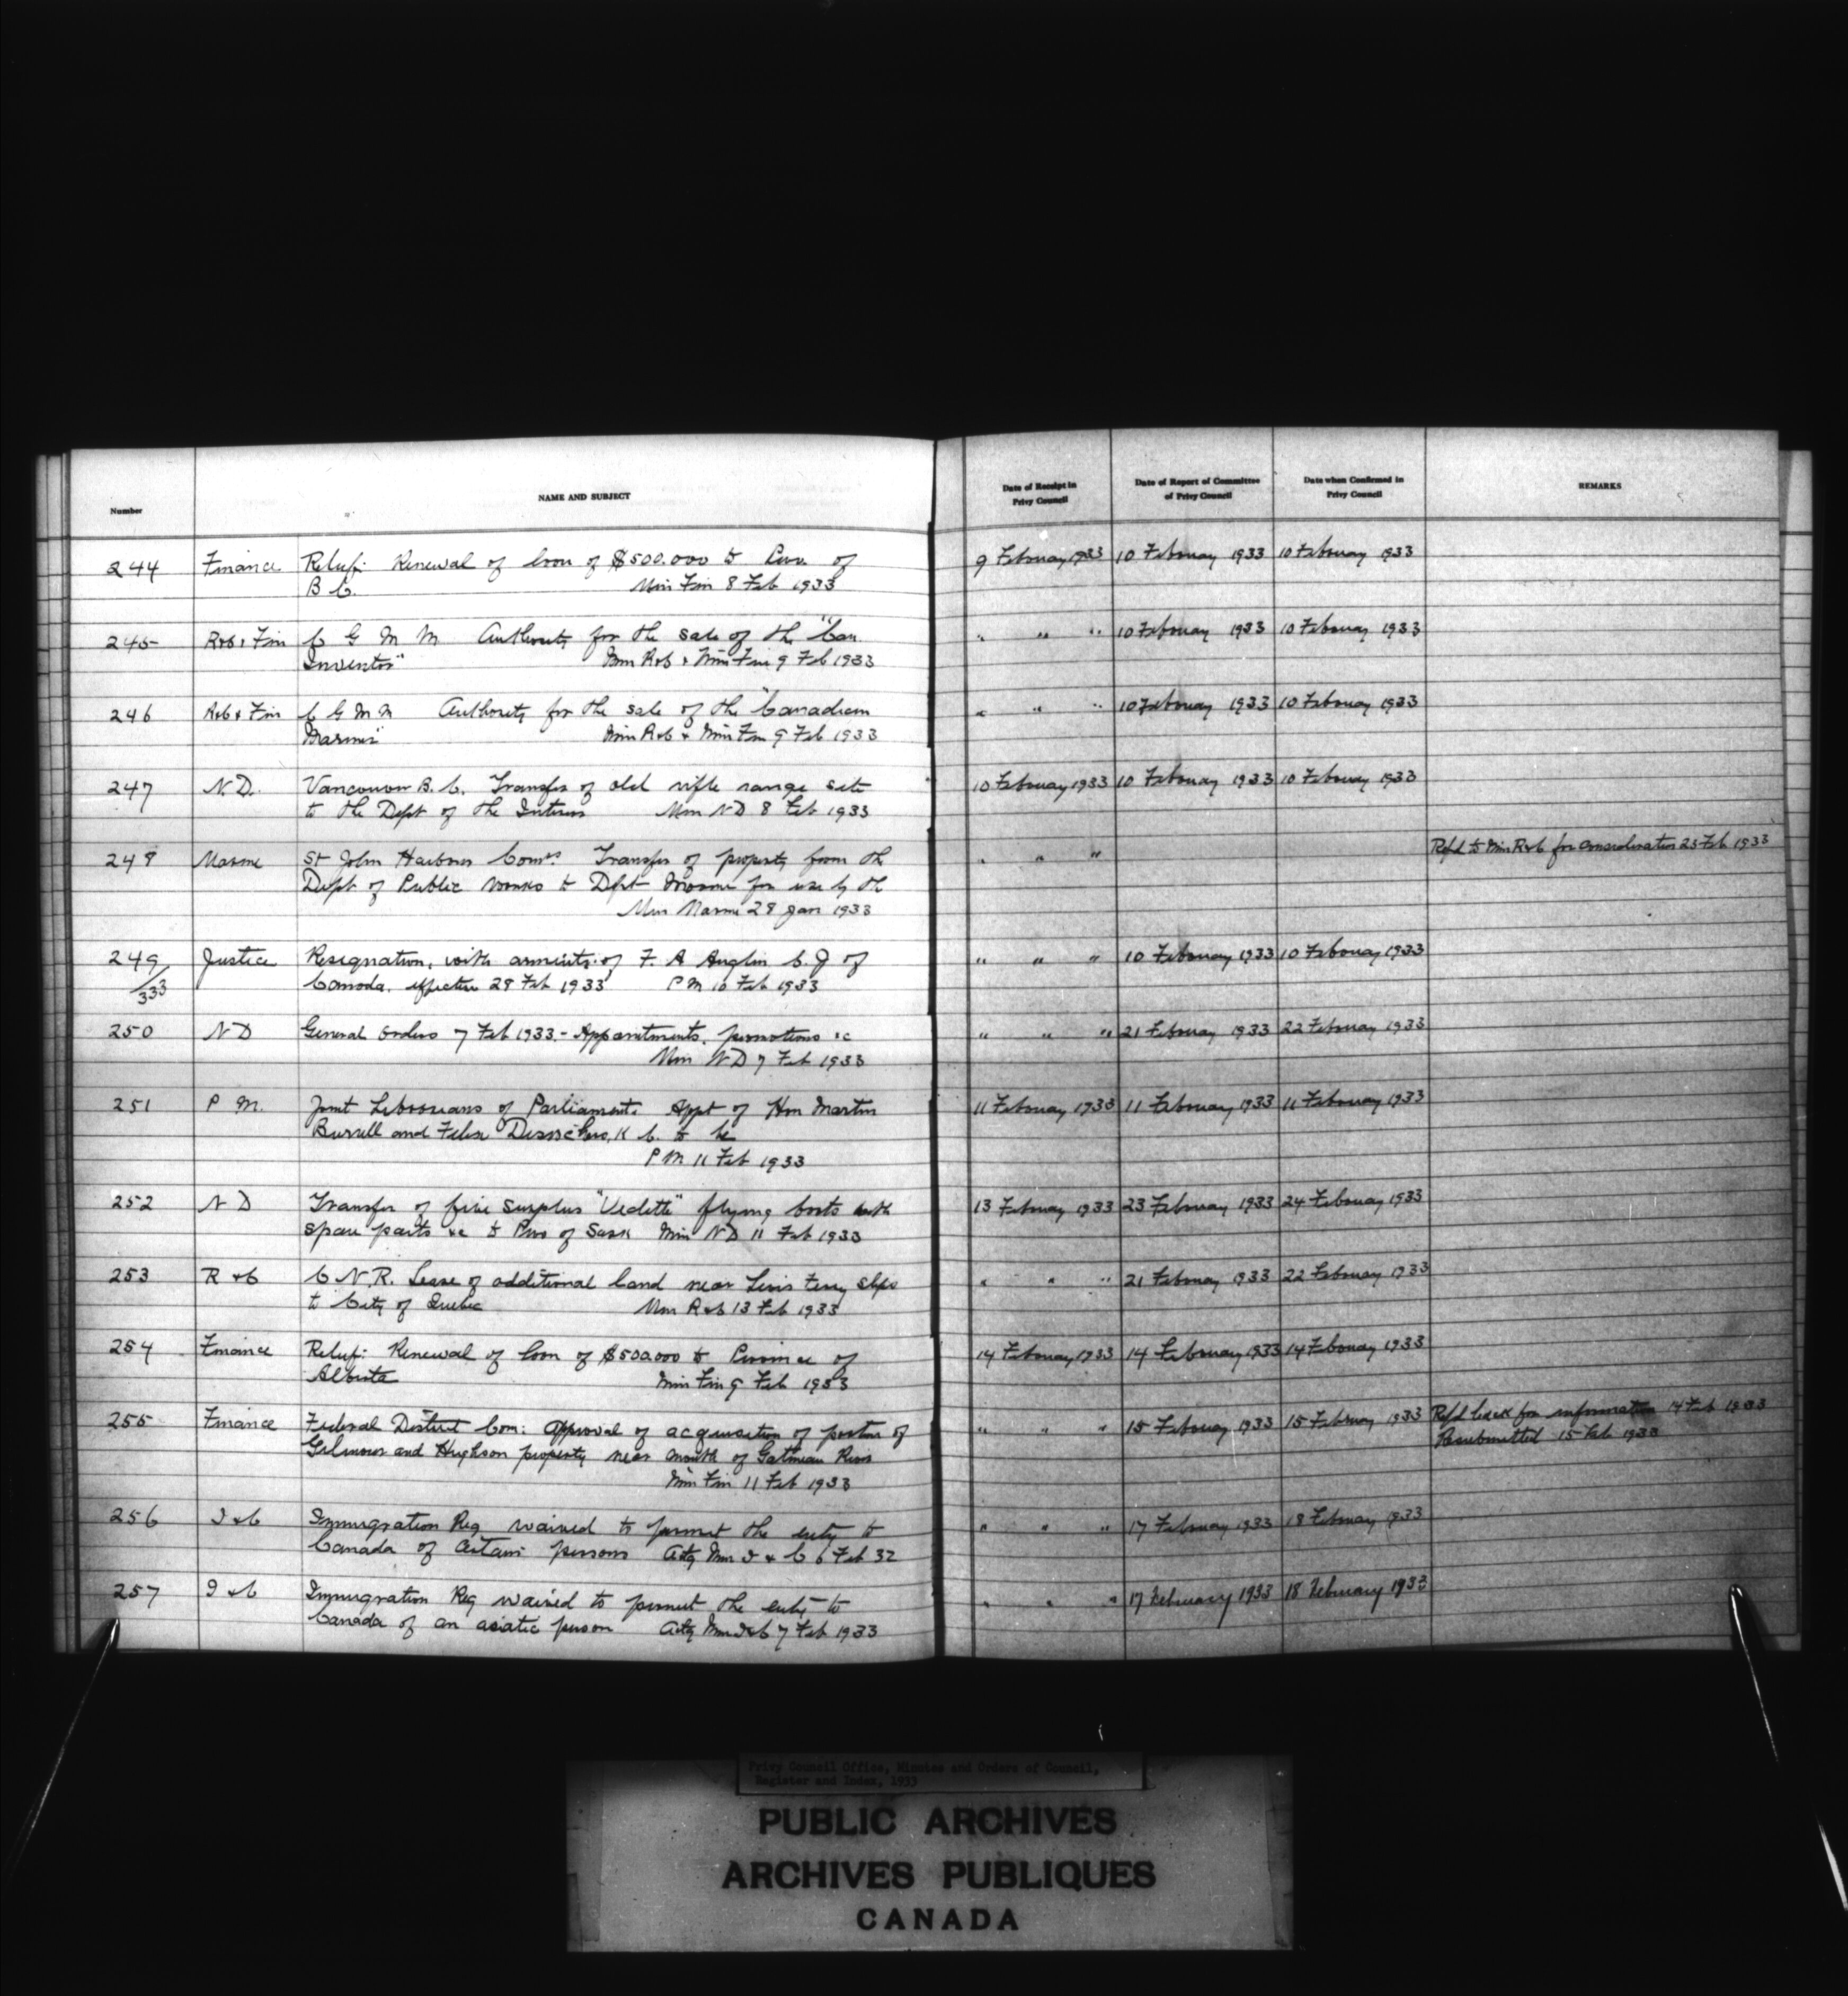 Number
NAME AND SUBJECT
Date of Receipt in
Privy Council
Date of Report of Committee
of Privy Council
Date when Confirmed in
Privy Council
REMARKS
244 Finance Relief: Renewal of loan of $500.000 to Prov. of 9 February 1933 10 February 1933 10 February 1933
B C. Min Fin 8 Feb 1933
245 R&C & Fin C G M M Authority for the sale of the "Can. " " " 10 February 1933 10 February 1933
Inventor" Min R&C & Min Fin 9 Feb 1933
246 R&C & Fin C G M M Authority for the sale of the "Canadian " " " 10 February 1933 10 February 1933
Mariner" Min R&C & Min Fin 9 Feb 1933
247 N.D. Vancouver B.C. Transfer of old rifle range site 10 February 1933 10 February 1933 10 February 1933
to the Dept of the Interior Min ND 8 Feb 1933
248 Marine St John Harbour Comrs. Transfer of property from the " " " Refd to Min R&C for consideration 23 Feb 1933
Dept of Public Works to Dept Marine for use by the
Min Marine 28 Jan 1933
249/333 Justice Resignation, with annuity of F. A Anglin C. J of " " " 10 February 1933 10 February 1933
Canada. effective 28 Feb 1933 P M 10 Feb 1933
250 N D General Orders 7 Feb 1933.- Appointments, promotions &c " " " 21 February 1933 22 February 1933
Min N D 7 Feb 1933
251 P M. Joint Librarians of Parliament. Appt of Hon Martin 11 February 1933 11 February 1933 11 February 1933
Burrell and Felix Desrochers, K C. to be
P M 11 Feb 1933
252 N D Transfer of five surplus "Vedette" flying boats with 13 February 1933 23 February 1933 24 February 1933
spare parts &c to Prov of Sask Min ND 11 Feb 1933
253 R &C C N.R. Lease of additional land near Levis Ferry slips " " " 21 February 1933 22 February 1933
to City of Quebec Min R&C 13 Feb 1933
254 Finance Relief: Renewal of loan of $500000 to Province of 14 February 1933 14 February 1933 14 February 1933
Alberta Min Fin 9 Feb 1933
255 Finance Federal District Com: Approval of acquisition of portion of " " " 15 February 1933 15 February 1933 Refd back for information 14 Feb 1933
Gilmour and Hughson property near mouth of Gatineau River Resubmitted 15 Feb 1933
Min Fin 11 Feb 1933
256 I &C Immigration Reg waived to permit the entry to " " " 17 February 1933 18 February 1933
Canada of certain persons Actg Min I & C 6 Feb 32
257 I &C Immigration Reg waived to permit the entry to " " " 17 February 1933 18 February 1933
Canada of an asiatic person Actg Min I&C 7 Feb 1933
Privy Council Office, Minutes and Orders of Council,
Register and Index, 1933
PUBLIC ARCHIVES
ARCHIVES PUBLIQUES
CANADA